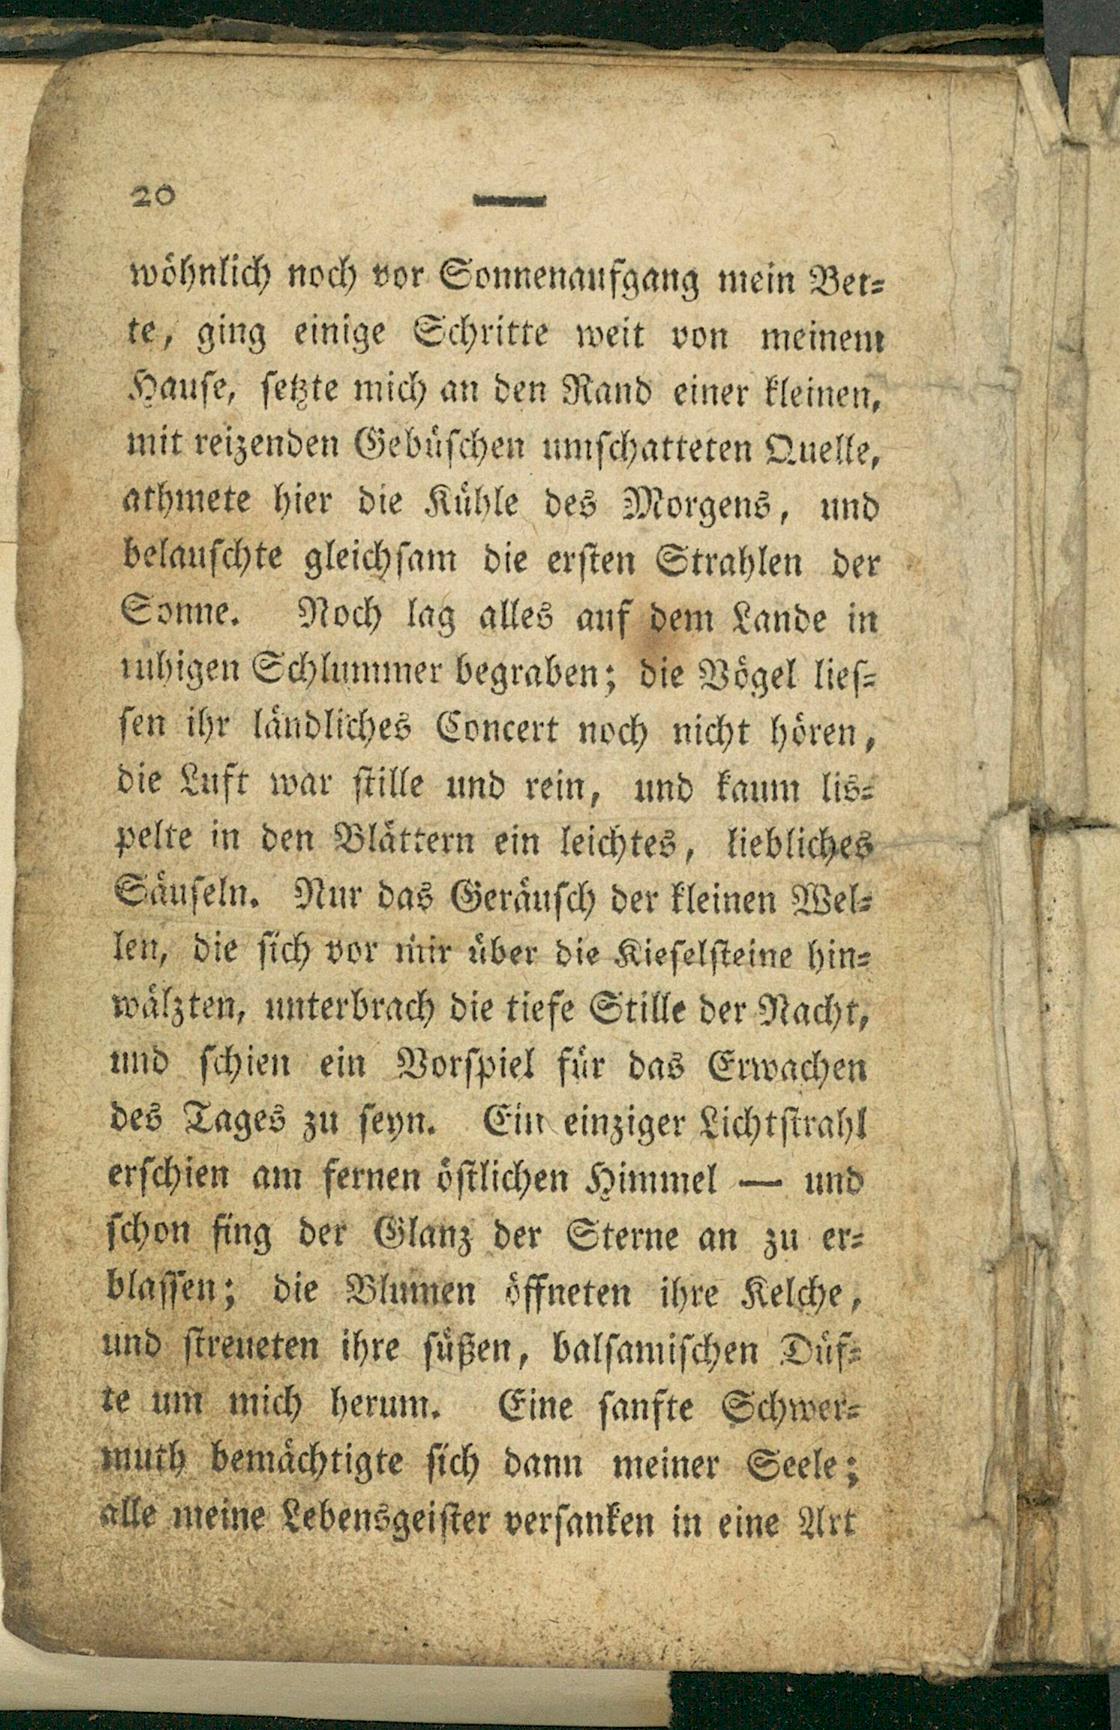 20
wöhnlich noch vor Sonnenaufgang mein Bet-
te, ging einige Schritte weit von meinem
Hause, setzte mich an den Rand einer kleinen,
mit reizenden Gebüschen umschatteten Quelle,
athmete hier die Kühle des Morgens, und
belauschte gleichsam die ersten Strahlen der
Sonne. Noch lag alles auf dem Lande in
ruhigen Schlummer begraben; die Vögel lies-
sen ihr ländliches Concert noch nicht hören,
die Luft war stille und rein, und kaum lis-
pelte in den Blättern ein leichtes, liebliches
Säuseln. Nur das Geräusch der kleinen Wel-
len, die sich vor mir über die Kieselsteine hin-
wälzten, unterbrach die tiefe Stille der Nacht,
und schien ein Vorspiel für das Erwachen
des Tages zu seyn. Ein einziger Lichtstrahl
erschien am fernen östlichen Himmel — und
schon fing der Glanz der Sterne an zu er-
blassen; die Blumen öffneten ihre Kelche,
und streueten ihre süßen, balsamischen Düf-
te um mich herum. Eine sanfte Schwer-
muth bemächtigte sich dann meiner Seele;
alle meine Lebensgeister versanken in eine Art